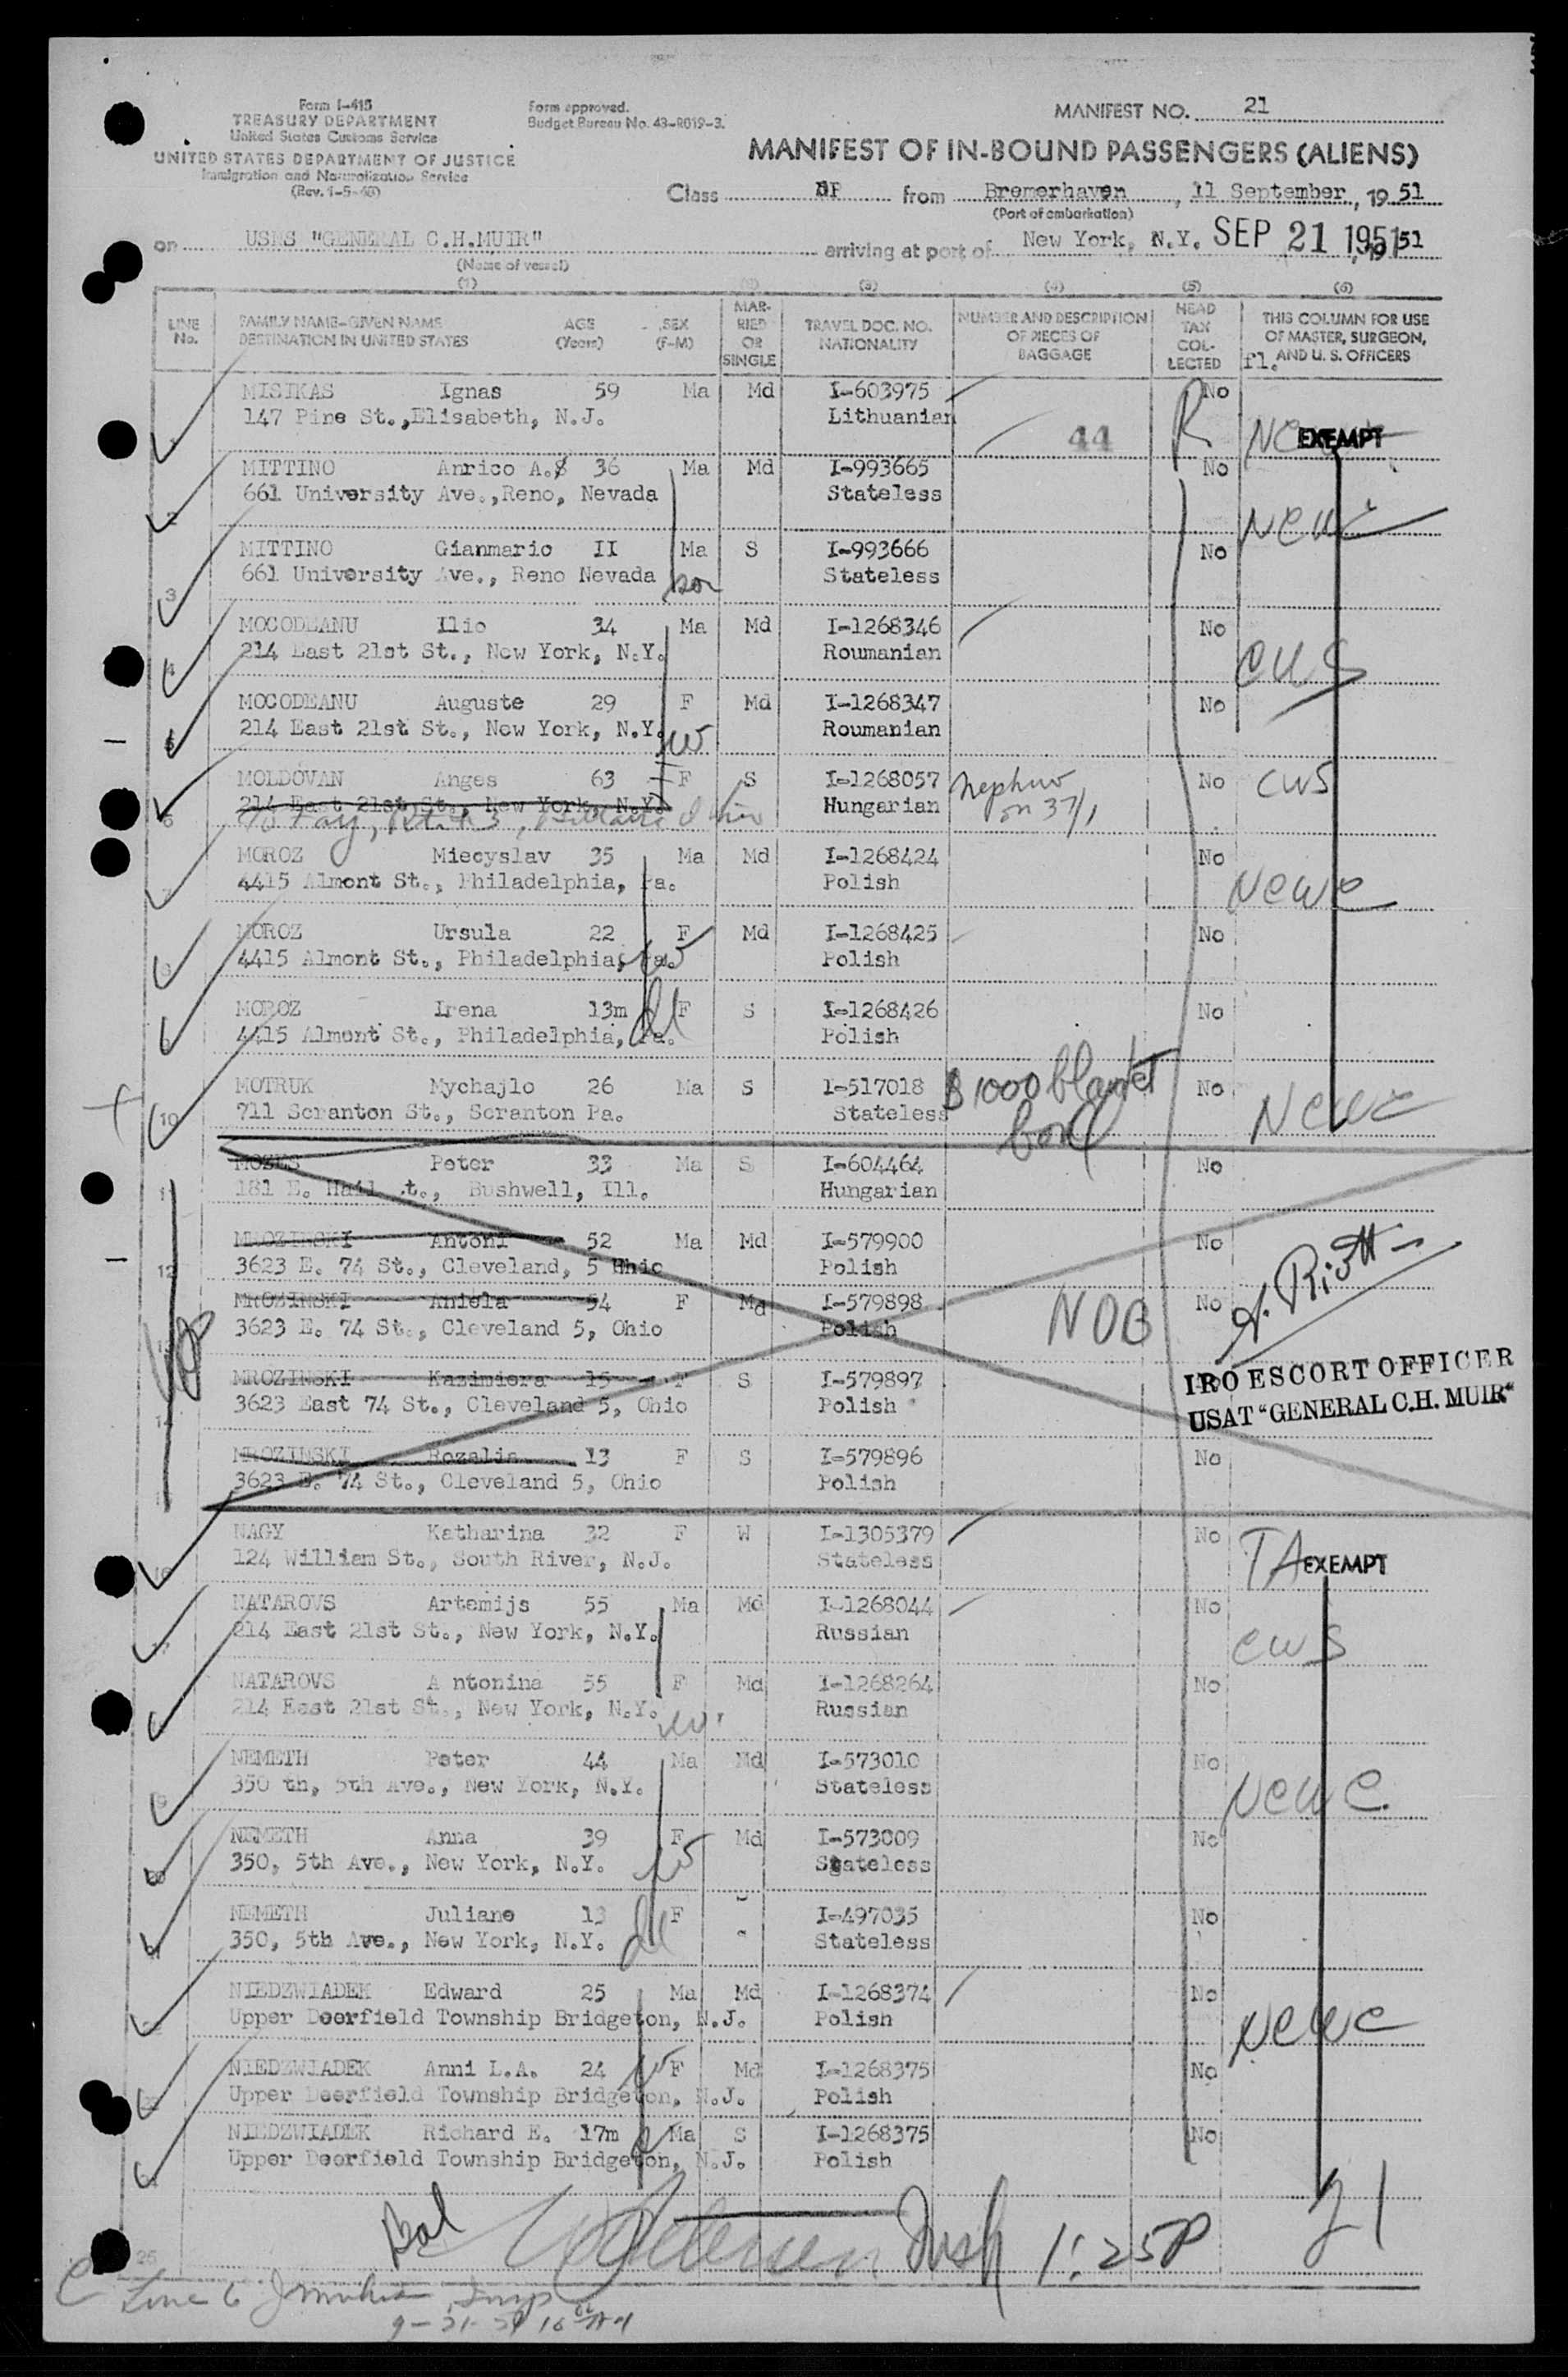 Form I-415
TREASURY DEPARTMENT
United States Customs Service
UNITED STATES DEPARTMENT OF JUSTICE
Immigration and Naturalization Service
(Rev. 1-5-48)
Form approved.
Budget Bureau No. 43-R019-3.
MANIFEST NO. 21
MANIFEST OF IN-BOUND PASSENGERS (ALIENS)
Class DP from Bremerhaven, 11 September, 1951
(Port of embarkation)
on USNS "GENERAL C.H.MUIR" arriving at port of New York, N.Y. SEP 21 1951 51
(Name of vessel)
(1) (3) (4) (5) (6)
LINE No. FAMILY NAME-GIVEN NAME DESTINATION IN UNITED STATES AGE (Years) SEX (F-M) MARRIED OR SINGLE TRAVEL DOC. NO. NATIONALITY NUMBER AND DESCRIPTION OF PIECES OF BAGGAGE HEAD TAX COLLECTED THIS COLUMN FOR USE OF MASTER, SURGEON, AND U. S. OFFICERS
fl.
MISIKAS Ignas 59 Ma Md I-603975 No
147 Pine St.,Elisabeth, N.J. Lithuanian 44 R EXEMPT
MITTINO Anrico A. 36 Ma Md I-993665 No
2 661 University Ave.,Reno, Nevada Stateless NCWC
MITTINO Gianmario II Ma S I-993666 No
3 661 University Ave., Reno Nevada son Stateless
MOCODEANU Ilie 34 Ma Md I-1268346 No
4 214 East 21st St., New York, N.Y. Roumanian CWS
MOCODEANU Auguste 29 F Md I-1268347 No
214 East 21st St., New York, N.Y. w Roumanian
MOLDOVAN Anges 63 F S I-1268057 Nephew No CWS
6 214 East 21st St., New York, N.Y. Hungarian on 37/1
MOROZ Miecyslav 35 Ma Md I-1268424 No
4415 Almont St., Philadelphia, Pa. Polish NCWC
MOROZ Ursula 22 F Md I-1268425 No
4415 Almont St., Philadelphia, Pa. w Polish
MOROZ Irena 13m F S I-1268426 No
4415 Almont St., Philadelphia, Pa. d Polish
MOTRUK Mychajlo 26 Ma S I-517018 $1000 blanket No
10 711 Scranton St., Scranton Pa. Stateless bond NCWC
MOZES Peter 33 Ma S I-604464 No
11 181 E. Hail St., Bushwell, Ill. Hungarian
MROZINSKI Antoni 52 Ma Md I-579900 No
12 3623 E. 74 St., Cleveland, 5 Ohio Polish
MROZINSKI Aniela 54 F Md I-579898 No
3623 E. 74 St., Cleveland 5, Ohio Polish NOB
MROZINSKI Kazimiera 15 F S I-579897
14 3623 East 74 St., Cleveland 5, Ohio Polish
IRO ESCORT OFFICER
USAT "GENERAL C.H. MUIR"
MROZINSKI Rozalia 13 F S I-579896 No
3623 E. 74 St., Cleveland 5, Ohio Polish
NAGY Katharina 32 F W I-1305379 No
16 124 William St., South River, N.J. Stateless TA EXEMPT
NATAROVS Artemijs 55 Ma Md I-1268044 No
214 East 21st St., New York, N.Y. Russian CWS
NATAROVS A ntonina 55 F Md I-1268264 No
214 East 21st St., New York, N.Y. w Russian
NEMETH Peter 44 Ma Md I-573010 No
350 th, 5th Ave., New York, N.Y. Stateless NCWC
NEMETH Anna 39 F Md I-573009 No
20 350, 5th Ave., New York, N.Y. w Stateless
NEMETH Juliane 13 F I-497035 No
350, 5th Ave., New York, N.Y. d Stateless
NIEDZWIADEK Edward 25 Ma Md I-1268374 No
Upper Deerfield Township Bridgeton, N.J. Polish NCWC
NIEDZWIADEK Anni L.A. 24 w F Md I-1268375 No
Upper Deerfield Township Bridgeton, N.J. Polish
NIEDZWIADEK Richard E. 17m Ma S I-1268375 No
Upper Deerfield Township Bridgeton, N.J. Polish
1:25P 21
25
Line 6